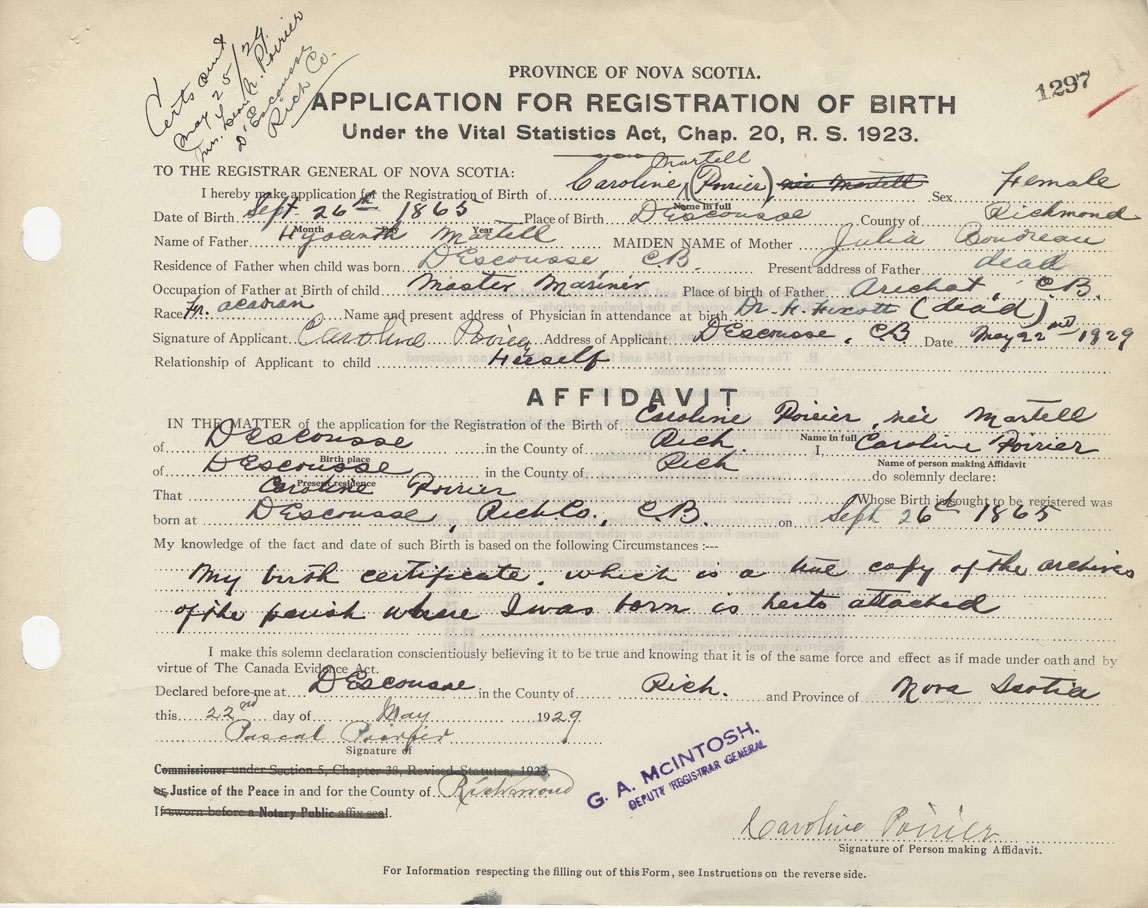 Certs sent
May 25/29
Mrs. Benj. Poirier
D'Escousse
Rich Co.
1297
PROVINCE OF NOVA SCOTIA.
APPLICATION FOR REGISTRATION OF BIRTH
Under the Vital Statistics Act, Chap. 20, R. S. 1923.
TO THE REGISTRAR GENERAL OF NOVA SCOTIA:
Martell
I hereby make application for the Registration of Birth of Caroline (Poirier) née Martell Sex Female
Name in full
Date of Birth Sept 26th 1865 Place of Birth D'Escousse County of Richmond
Month Day Year
Name of Father Hyacinth Martell MAIDEN NAME of Mother Julia Boudreau
Residence of Father when child was born D'Escousse C.B. Present address of Father dead
Occupation of Father at Birth of child Master Mariner Place of birth of Father Arichat, C.B.
Race Fr. acadian Name and present address of Physician in attendance at birth Dr. H. Fixott (dead)
Signature of Applicant Caroline Poirier Address of Applicant D'Escousse, C.B Date May 22nd 1929
Relationship of Applicant to child Herself
AFFIDAVIT
IN THE MATTER of the application for the Registration of the Birth of Caroline Poirier, née Martell
Name in full
of D'Escousse in the County of Rich. I, Caroline Poirier
Birth place Name of person making Affidavit
of D'Escousse in the County of Rich do solemnly declare:
Present residence
That Caroline Poirier Whose Birth is sought to be registered was
born at D'Escousse, Rich Co., C.B. on Sept 26th 1865
My knowledge of the fact and date of such Birth is based on the following Circumstances :---
My birth certificate, which is a true copy of the archives
of the parish where I was born is herto attached
I make this solemn declaration conscientiously believing it to be true and knowing that it is of the same force and effect as if made under oath and by
virtue of The Canada Evidence Act.
Declared before me at D'Escousse in the County of Rich. and Province of Nova Scotia
this 22nd day of May 1929
Pascal Poirier
Signature of
Commissioner under Section 5, Chapter 38, Revised Statutes, 1923,
or Justice of the Peace in and for the County of Richmond
If sworn before a Notary Public affix seal.
G. A. McINTOSH.
DEPUTY REGISTRAR GENERAL
Caroline Poirier
Signature of Person making Affidavit.
For Information respecting the filling out of this Form, see Instructions on the reverse side.